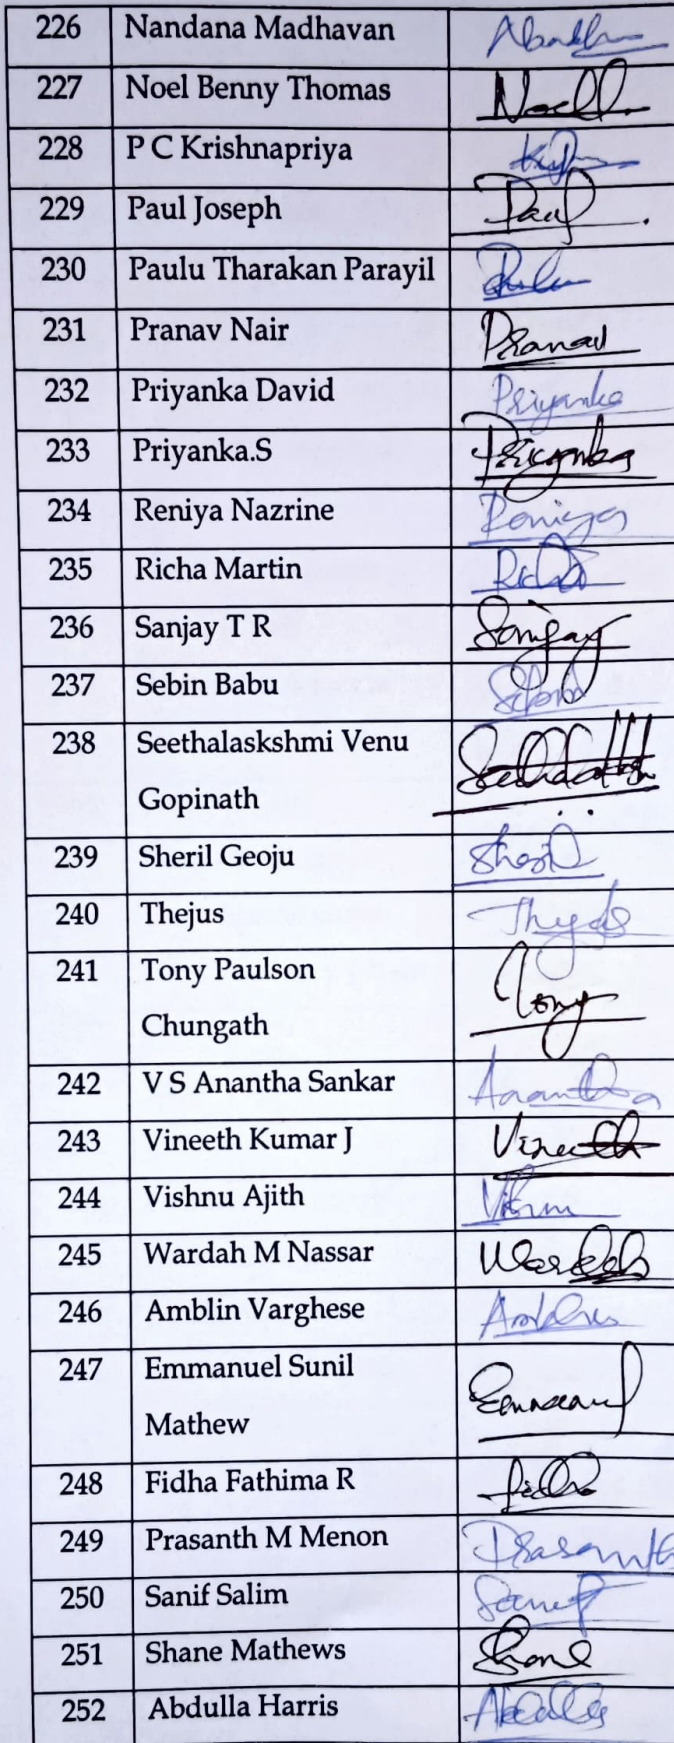 226 Nandana Madhavan
227 Noel Benny Thomas Noel
228 P C Krishnapriya
229 Paul Joseph Paul
230 Paulu Tharakan Parayil
231 Pranav Nair Pranav
232 Priyanka David Priyanka
233 Priyanka.S Priyanka
234 Reniya Nazrine Reniya
235 Richa Martin Richa
236 Sanjay T R Sanjay
237 Sebin Babu Sebin
238 Seethalaskshmi Venu
Gopinath
239 Sheril Geoju Sheril
240 Thejus Thejus
241 Tony Paulson
Chungath Tony
242 V S Anantha Sankar Anantha
243 Vineeth Kumar J Vineeth
244 Vishnu Ajith
245 Wardah M Nassar Wardah
246 Amblin Varghese
247 Emmanuel Sunil
Mathew
248 Fidha Fathima R Fidha
249 Prasanth M Menon Prasanth
250 Sanif Salim Sanif
251 Shane Mathews Shane
252 Abdulla Harris Abdulla